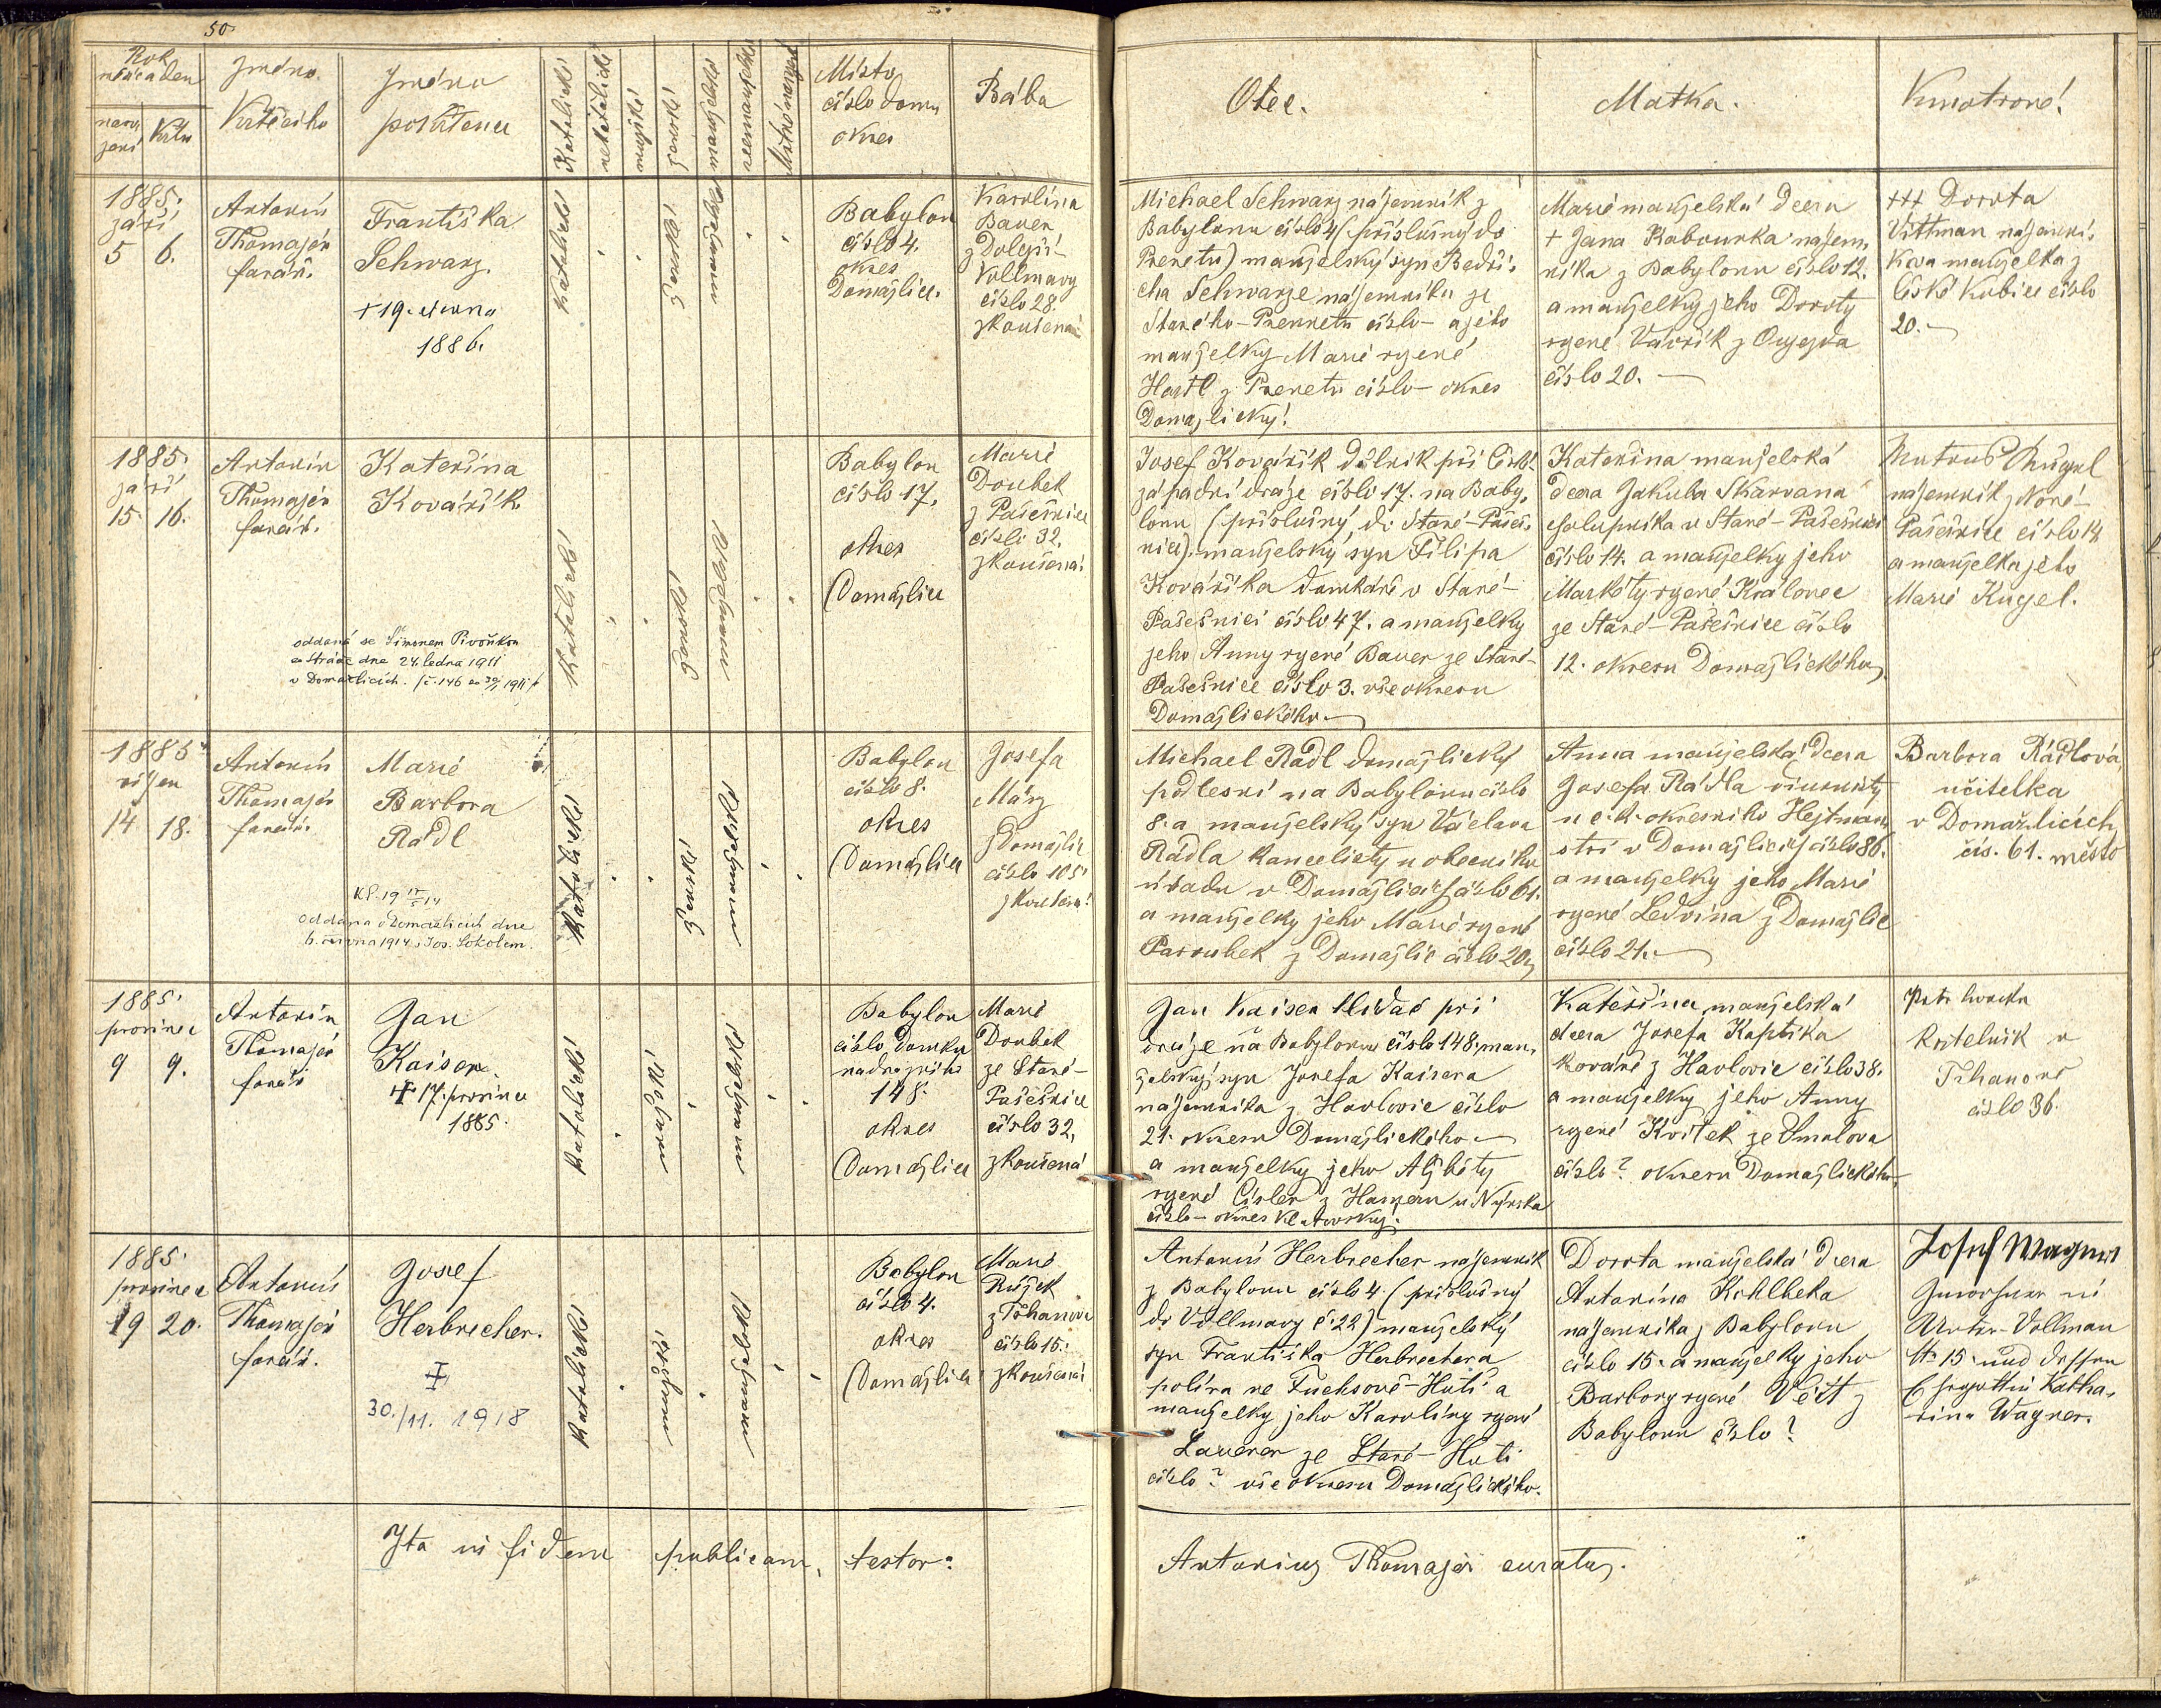 50
Rok
měsíc a den
naro
zení
křtu
Jméno
Křtícího
Jméno
pokřtence
Katolické
nekatolické
mužské
ženské
manželské
nemanželské
Mrtvě narozené
Místo
číslo domu
okres
Bába
Otec.
Matka.
Kmotrové!
1885.
září
5 6.
Antonín
Thomayer
farář.
Františka
Schwarz.
+ 19. června
1886.
Katolické
ženské
Manželské
Babylon
číslo 4.
okres
Domažlice.
Karolína
Bauer
z Dolejší-
Vollmavy
číslo 28.
zkoušená
Michael Schwarz nájemník z
Babylonu číslo 4 (příslušný do
Prenetu) manželský syn Bedři-
cha Schwarze nájemníka ze
Starého-Prennetu číslo – a jeho
manželky Marie rozené
Hartl z Prenetu číslo – okres
Domažlický!
Marie manželská dcera
+ Jana Kabourka nájem-
níka z Babylonu číslo 12.
a manželky jeho Doroty
rozené Vavřík z Oujezda
číslo 20. –
+++ Dorota
Vittman nájemní-
kova manželka z
České Kubice číslo
20. –
1885.
září
15. 16.
Antonín
Thomayer
farář.
Kateřina
Kovářík
oddaná se Šimonem Pivoňkou
ze Stráže dne 24. ledna 1911
v Domažlicích. /č. 146 ex 30/1 1911/
Katolické
ženské
Manželské
Babylon
číslo 17,
okres
Domažlice
Marie
Doubek
z Pasečnice
číslo 32,
zkoušená.
Josef Kovářík dělník při České
západní dráze číslo 17. na Baby-
lonu (příslušný do Staré-Paseč-
nice). manželský syn Filipa
Kováříka domkáře v Staré-
Pasečnici číslo 47. a manželky
jeho Anny rozené Bauer ze Staré-
Pasečnice číslo 3. vše okresu
Domažlického –
Kateřina manželská
dcera Jakuba Skarvana
chalupníka v Staré-Pasečnici
číslo 14. a manželky jeho
Markéty rozené Královec
ze Staré-Pasečnice číslo
12. okresu Domažlického
nájemník z Nové-
Pasečnice číslo 14
a manželka jeho
Marie Kugel.
1885
říjen
14 18.
Antonín
Thomayer
farář.
Marie
Barbora
Rádl
Oddána v Domažlicích dne
6. června 1914 s Jos. Sokolem.
Katolické
ženské
Manželské
Babylon
číslo 8.
okres
Domažlice
Josefa
März
z Domažlic
číslo 105
zkoušená!
Michael Rádl domažlický
podlesní na Babylonu číslo
8. a manželský syn Václava
Rádla kancelisty u obecního
úřadu v Domažlicích číslo 61.
a manželky jeho Marie rozené
Paroubek z Domažlic číslo 20
Anna manželská dcera
Josefa Rádla diurnisty
u c. k. okresního Hejtman-
ství v Domažlicích číslo 86.
a manželky jeho Marie
rozené Ledvina z Domažlic
číslo 21. –
Barbora Rádlová,
učitelka
v Domažlicích
čís. 61. město
1885.
prosince
9 9.
Antonín
Thomayer
farář
Jan
Kaiser.
+ 17. prosince
1885.
Katolické
mužské
Manželské
Babylon
číslo domku
nadražního
148.
okres
Domažlice
Marie
Doubek
ze Staré-
Pasečnice
číslo 32,
zkoušená
Jan Kaiser hlídač při
dráze na Babylonu číslo 148. man-
želský syn Josefa Kaisera
nájemníka z Havlovic číslo
21. okresu Domažlického –
a manželky jeho Alžběty
rozené Cisler z Hameru u Nýrska
číslo – okres Klatovský.
Kateřina, manželská
dcera Josefa Kaptika
kováře z Havlovic číslo 38.
a manželky jeho Anny
rozené Kvítek ze Smolova
číslo? okresu Domažlického
Petr
v
Trhanově
číslo 36.
1885.
prosince
19 20.
Antonín
Thomayer
farář.
Josef
Herbrecher.
+
30./11. 1918
Katolické
mužské
Manželské
Babylon
číslo 4.
okres
Domažlice
Marie
z Trhanova
číslo 15.
zkoušená
Antonín Herbrecher nájemník
z Babylonu číslo 4. (příslušný
do Vollmavy č. 22) manželský
syn Františka Herbrechera
políra ve Fuchsově-Huti a
manželky jeho Karolíny rozené
Lauerer ze Staré-Huti
číslo? vše okresu Domažlického.
Dorota manželská dcera
Antonína Kohlbeka
nájemníka z Babylonu
číslo 15. a manželky jeho
Barbory rozené Veit z
Babylonu číslo?
Josef Wagner
Inwohner in
Unter-Vollmau
N. 15. und dessen
Ehegattin Katha-
rina Wagner.
Ita in fidem publicam, testor:
Antonius Thomayer curatus.